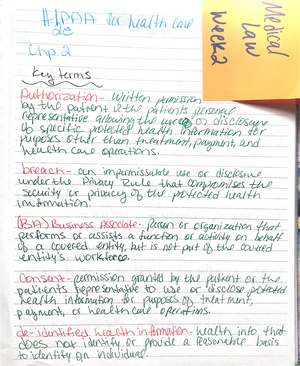 HIPAA for health care
2e
Chp 2
Medical
Law
Week 2
Key terms
Authorization- Written permission
by the patient or the patients personal
representative allowing the use or disclosure
of specific protected health information for
purposes other than treatment, payment, and
health care operations.
breach- an impermissable use or disclosure
under the Privacy Rule that compromises the
security or privacy of the protected health
information.
(BA) Business Associate- Person or organization that
performs or assists a function or activity on behalf
of a covered entity, but is not part of the covered
entity's workforce.
Consent- permission granted by the patient or the
patients representative to use or disclose protected
health information for purposes of treatment,
payment, or health care operations.
de-identified health information- health info, that
does not identify or provide a reasonable basis
to identify an individual.